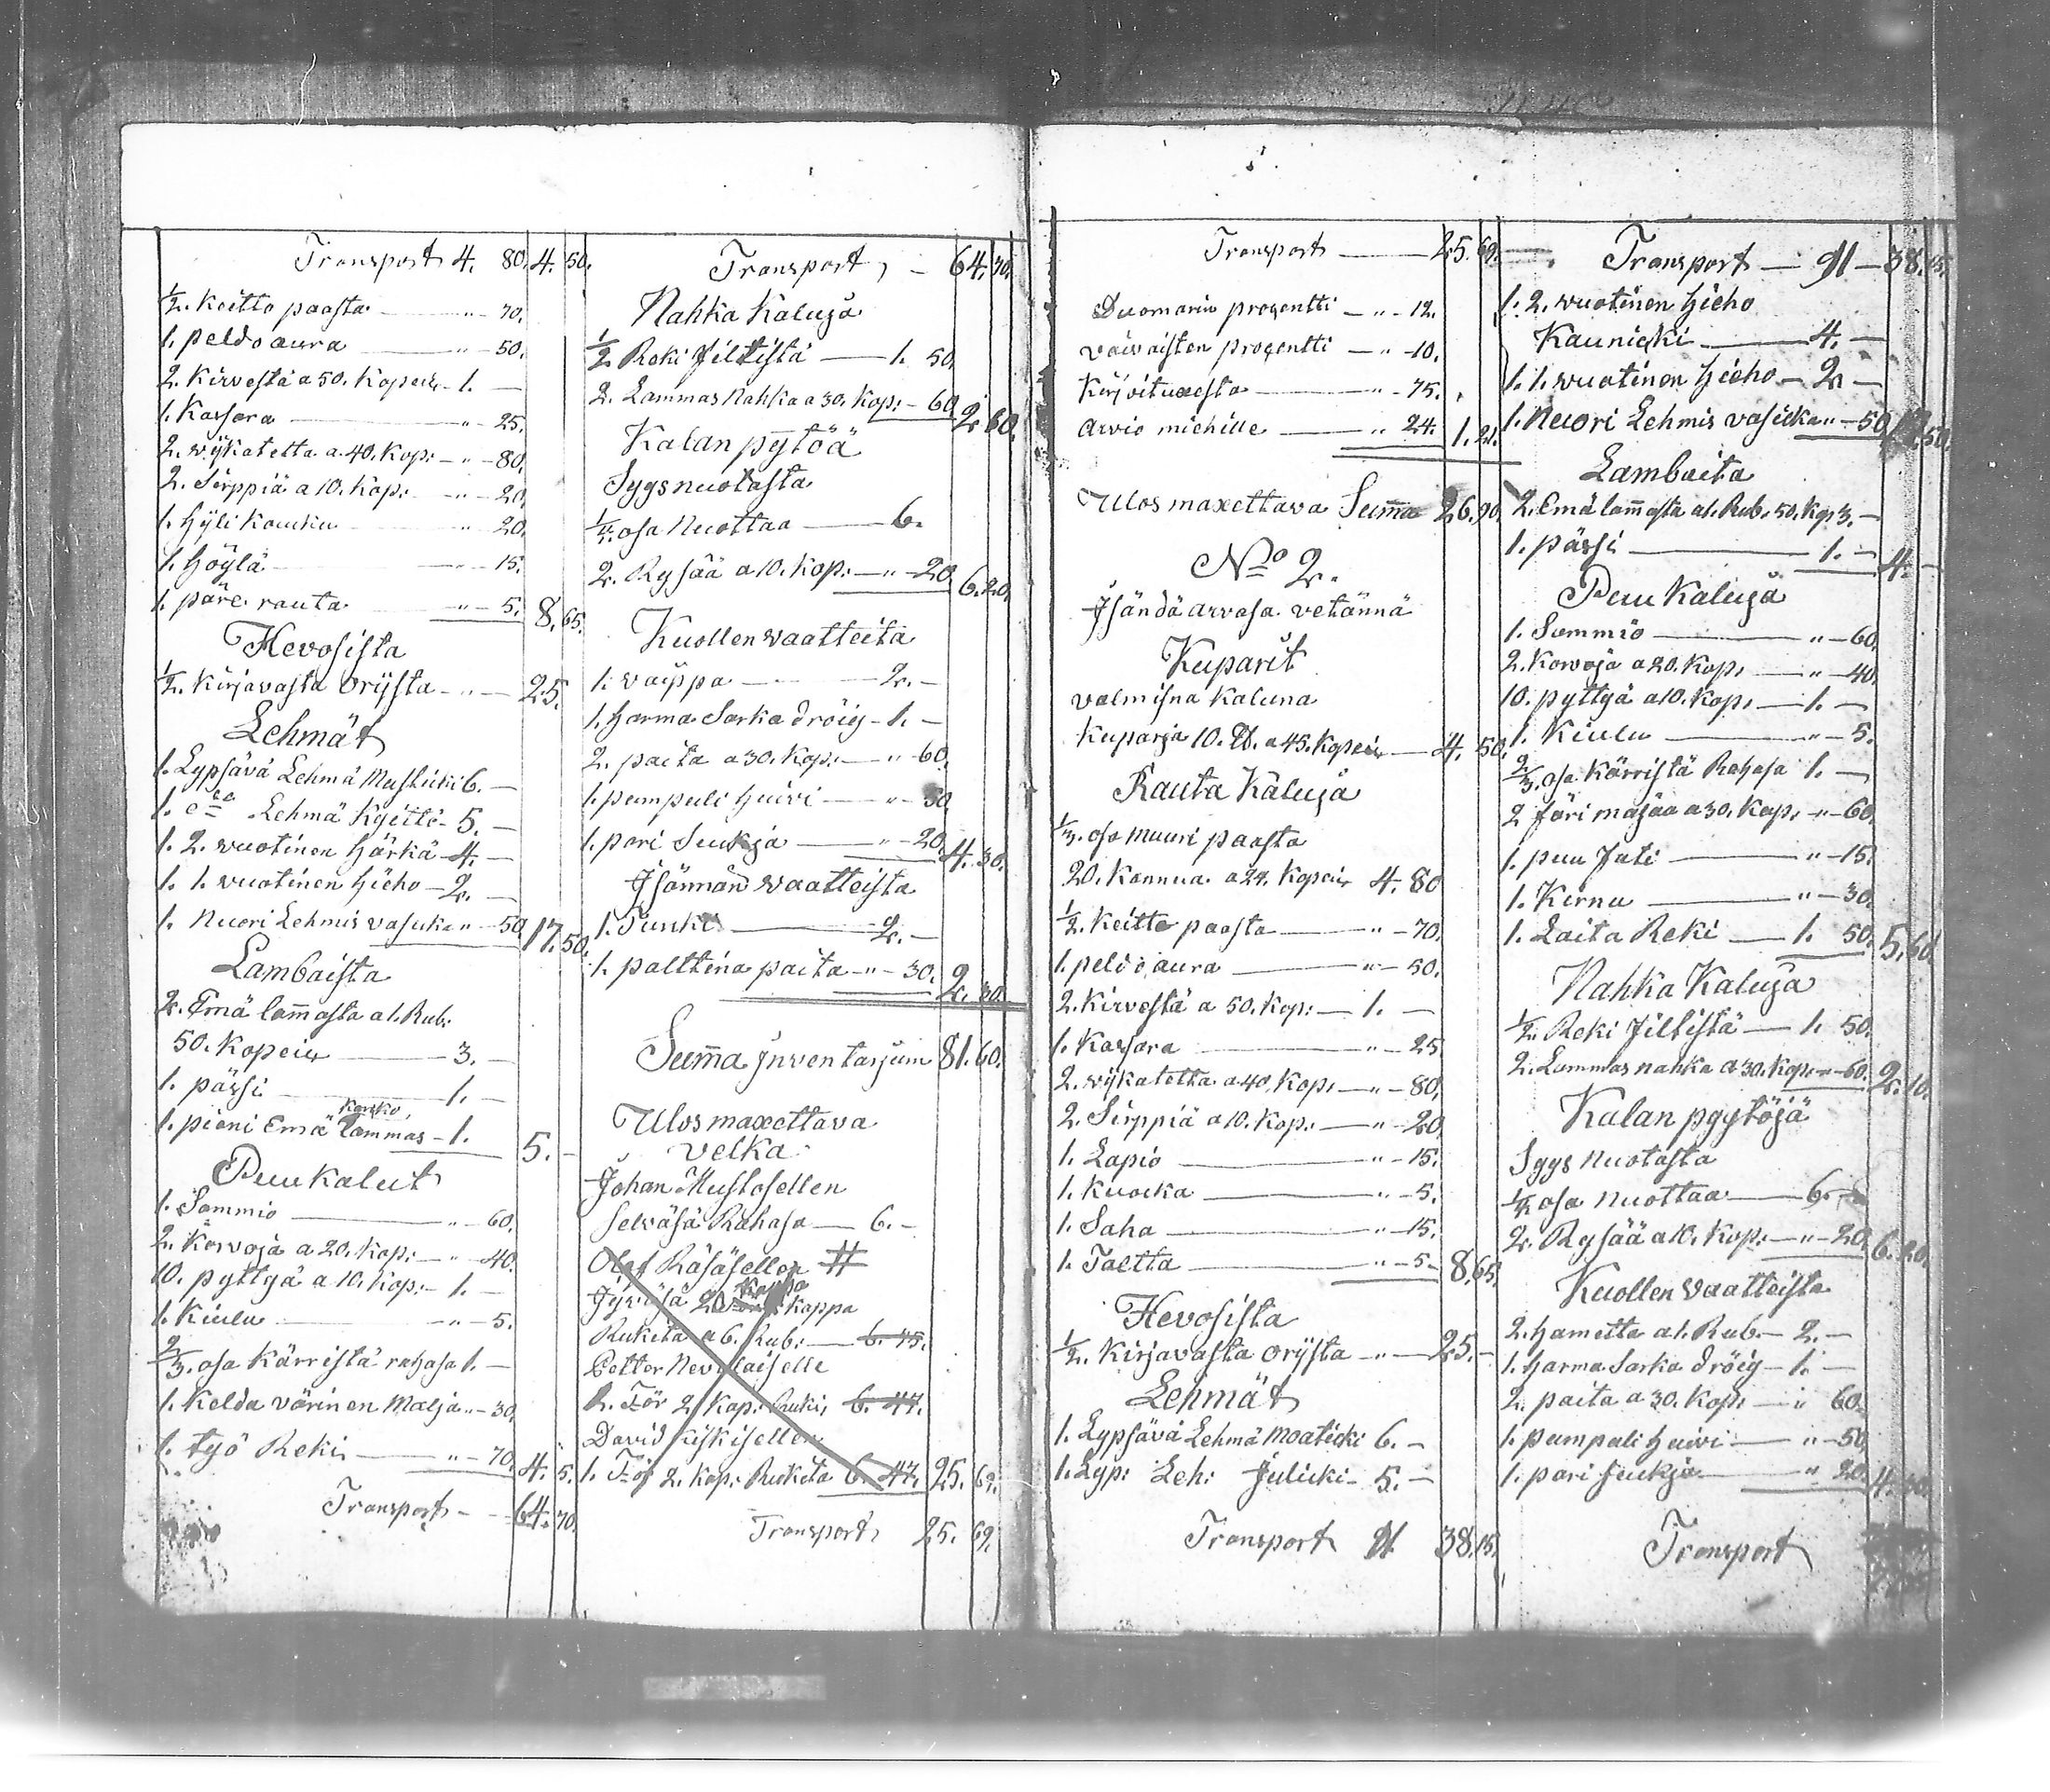 Transport 4. 80. 4. 50.
1/2. Keitto paasta " 70.
1. peldo aura " 50.
2. Kirvestä a 50. Kopeik 1. —
1. Kassara " 25.
2. wijkatetta a. 40. Kop: " 80.
2. Sirppiä a 10. Kop: " 20.
1. Hyli Kouku " 20.
1. Höylä " 15.
1. päre rauta " 5. 8. 65.
Hevosista
1/2. Kirjavasta orijsta " 25.
Lehmät
1. Lypsävä Lehmä Mustiki 6. —
1. Lehmä Kyittö 5. —
1. 2. wuotinen härkä 4. —
1. 1. wuotinen hieho 2. —
1. Nuori Lehmis vasikka " 50. 17. 50.
Lambaista
2. Emä lam̄asta a 1. Rub:
50. Kopeik 3. —
1. pässi 1. —
1. pieni Emä karko, lammas 1. 5. —
Puukalut
1. Sammio " 60.
2. Korvoja a 20. Kop: " 40.
10. pyttyä a 10. Kop: 1. —
1. Kiulu " 5.
2/3. osa Kärristä rahasa 1. —
1. Kelda värinen Malja " 30.
1. työ Reki " 70. 4. 5.
Transport 64. 70.
Transport, 64. 70.
Nahka Kaluja
1/2 Reki Jiltistä 1. 50.
2. Lammas Nahka a 30. Kop: 60. 2. 60.
Kalan pytöä
Sygsnuotasta
1/4. osa Nuottaa 6.
2. Rysää a 10. Kop: " 20. 6. 20.
Kuollen waatteita
1. waippa 2. —
1. harma Sarka dröig 1. —
2. paita a 30. Kop: " 60.
1. pumpuli huivi " 50
1. pari Sukja " 20. 4. 30.
Jsännän waatteista
1. Turki 2. —
1. palttina paita " 30. 2. 30.
Sum̄a Jnventarjum 81. 60.
Ulosmaxettava
velka
Johan Mustosellen
selväsä Rahasa 6. —
Olof Räsäsellen
Jyväsä 2 kappa
Rukita a 6. Rub: 6. 45.
Petter Nevalaiselle
1. Tör 2. Kap: Rukis, 6. 47.
David Kiskisellen
1. Tör 2. Kap: Rukita 6. 47. 25. 69.
Transport 25. 69.
Transport 25. 69.
Duomarin progentti " 12.
väivaisten progentti " 10.
Kirjoituxesta " 75.
Arvio miehille " 24. 1. 21.
Ulosmaxettava Sum̄a 26. 90.
No 2.
Jsändä arvasa vetännä
Kuparit
valmisna Kaluna
Kuparja 10. ℔. a 45. Kopeik 4. 50.
Rauta Kaluja
1/3. osa Muuri paasta
20. Kannua a 24. Kopeik 4. 80
1/2. Keitto paasta " 70.
1. peldo aura " 50.
2. Kirvestä a 50. Kop: 1. —
1. Kassara " 25
2. wijkatetta a 40. Kop: " 80.
2. Sirppiä a 10. Kop: " 20
1. Lapio " 15.
1. Kuocka " 5.
1. Saha " 15.
1. Taltta " 5. 8. 65.
Hevosista
1/2. Kirjavasta orijsta " 25. —
Lehmät
1. Lypsävä Lehmä Moaticki 6. —
1. Lyp: Leh: Julicki 5. —
Transport 11. 38. 15.
Transport 11 — 38. 15.
1. 2. wuotinen Hieho
Kaunicki 4. —
1. 1. wuotinen hieho 2. —
1. Nuori Lehmis vasicka " 50. 17. 50.
Lambaita
2. Emä lam̄asta a 1. Rub. 50. Kop 3. —
1. pässi 1. — 4. —
Puu Kaluja
1. Sammio " 60.
2. Korvoja a 20. Kop: " 40.
10. pyttyä a 10. Kop: 1. —
1. Kiulu " 5.
2/3. osa Kärristä Rahasa 1. —
2 Järi maljaa a 30. Kop: " 60.
1. puu Fati " 15.
1. Kirnu " 30.
1. Laita Reki 1. 50. 5. 60.
Nahka Kaluja
1/2. Reki Jiltistä 1. 50.
2. Lammas nahka a 30. Kop: " 60. 2. 10.
Kalan pyytöjä
Sygs Nuotasta
1/4 osa Nuottaa 6.
2. Rysää a 10. Kop: " 20. 6. 20.
Kuollen Vaatteista
2. hametta a 1. Rub. 2. —
1. harma Sarka dröig 1. —
2. paita a 30. Kop: 60.
1. pumpuli huivi " 50.
1. pari Sukja " 20. 4. 30.
Transport